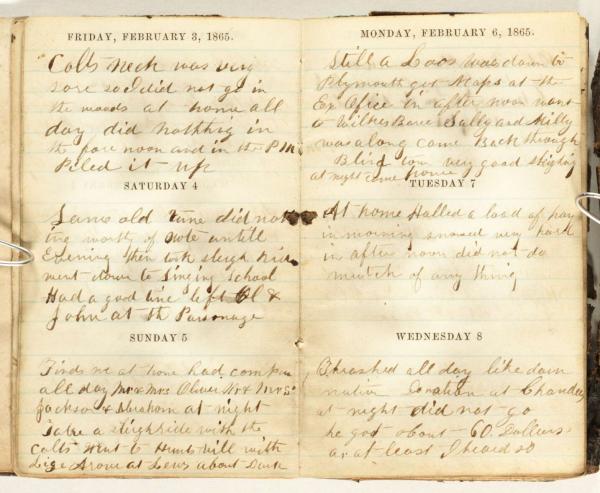 FRIDAY, FEBRUARY 3, 1865.
Colts neck was very
sore so did not go in
the woods at home all
day did nothing in
the fore noon and in the P.M.
Piled it up
SATURDAY 4
Same old tune did not
ing worthy of note untill
Evening then took sleigh ride
went down to Singing school
Had a good time left Al &
John at the Parsonage
SUNDAY 5
Finds me at home had compan
all day Mr & Mrs Oliver Mr & Mrs
Jackson & Abraham at night
Take a sleighride with the
colts went to Hunts vill with
Lige at Lews about Dark
MONDAY, FEBRUARY 6, 1865.
Still a Loos was down to
Plymouth got Maps at the
Ex Office in after noon went
to Wilkes Barre Sally and Milly
was along came Back through
Blind town very good sleighing
at night came home
TUESDAY 7
At home Halled a load of hay
in morning snowed very hard
in after noon did not do
mutch of any thing
WEDNESDAY 8
Thrashed all day like dam
nation Donation at Chandlers
at night did not go
he got about 60. Dollars
or at least I heard so